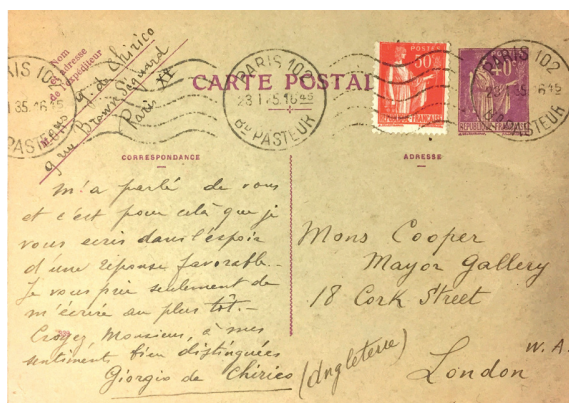 Nom
et adresse
de l'expéditeur
Mons G. de Chirico
9 rue Brown Séquard
Paris XV
PARIS 102
23 I 35.16 45
Bd PASTEUR
CARTE POSTAL
POSTES
50c
REPUBLIQUE FRANÇAISE
40c
REPUBLIQUE FRANÇAISE
PARIS 102
16 45
Bd PASTEUR
CORRESPONDANCE
ADRESSE
m'a parlé de vous
et c'est pour celà que je
vous ecris dans l'éspoir
d'une réponse favorable.-
Je vous prie seulement de
m'écrire au plus tôt.-
Croyez, Monsieur, à mes
sentiments bien distinguées
Giorgio de Chirico
Mons Cooper
Mayor Gallery
18 Cork Street
W. A.
London
(Angleterre)